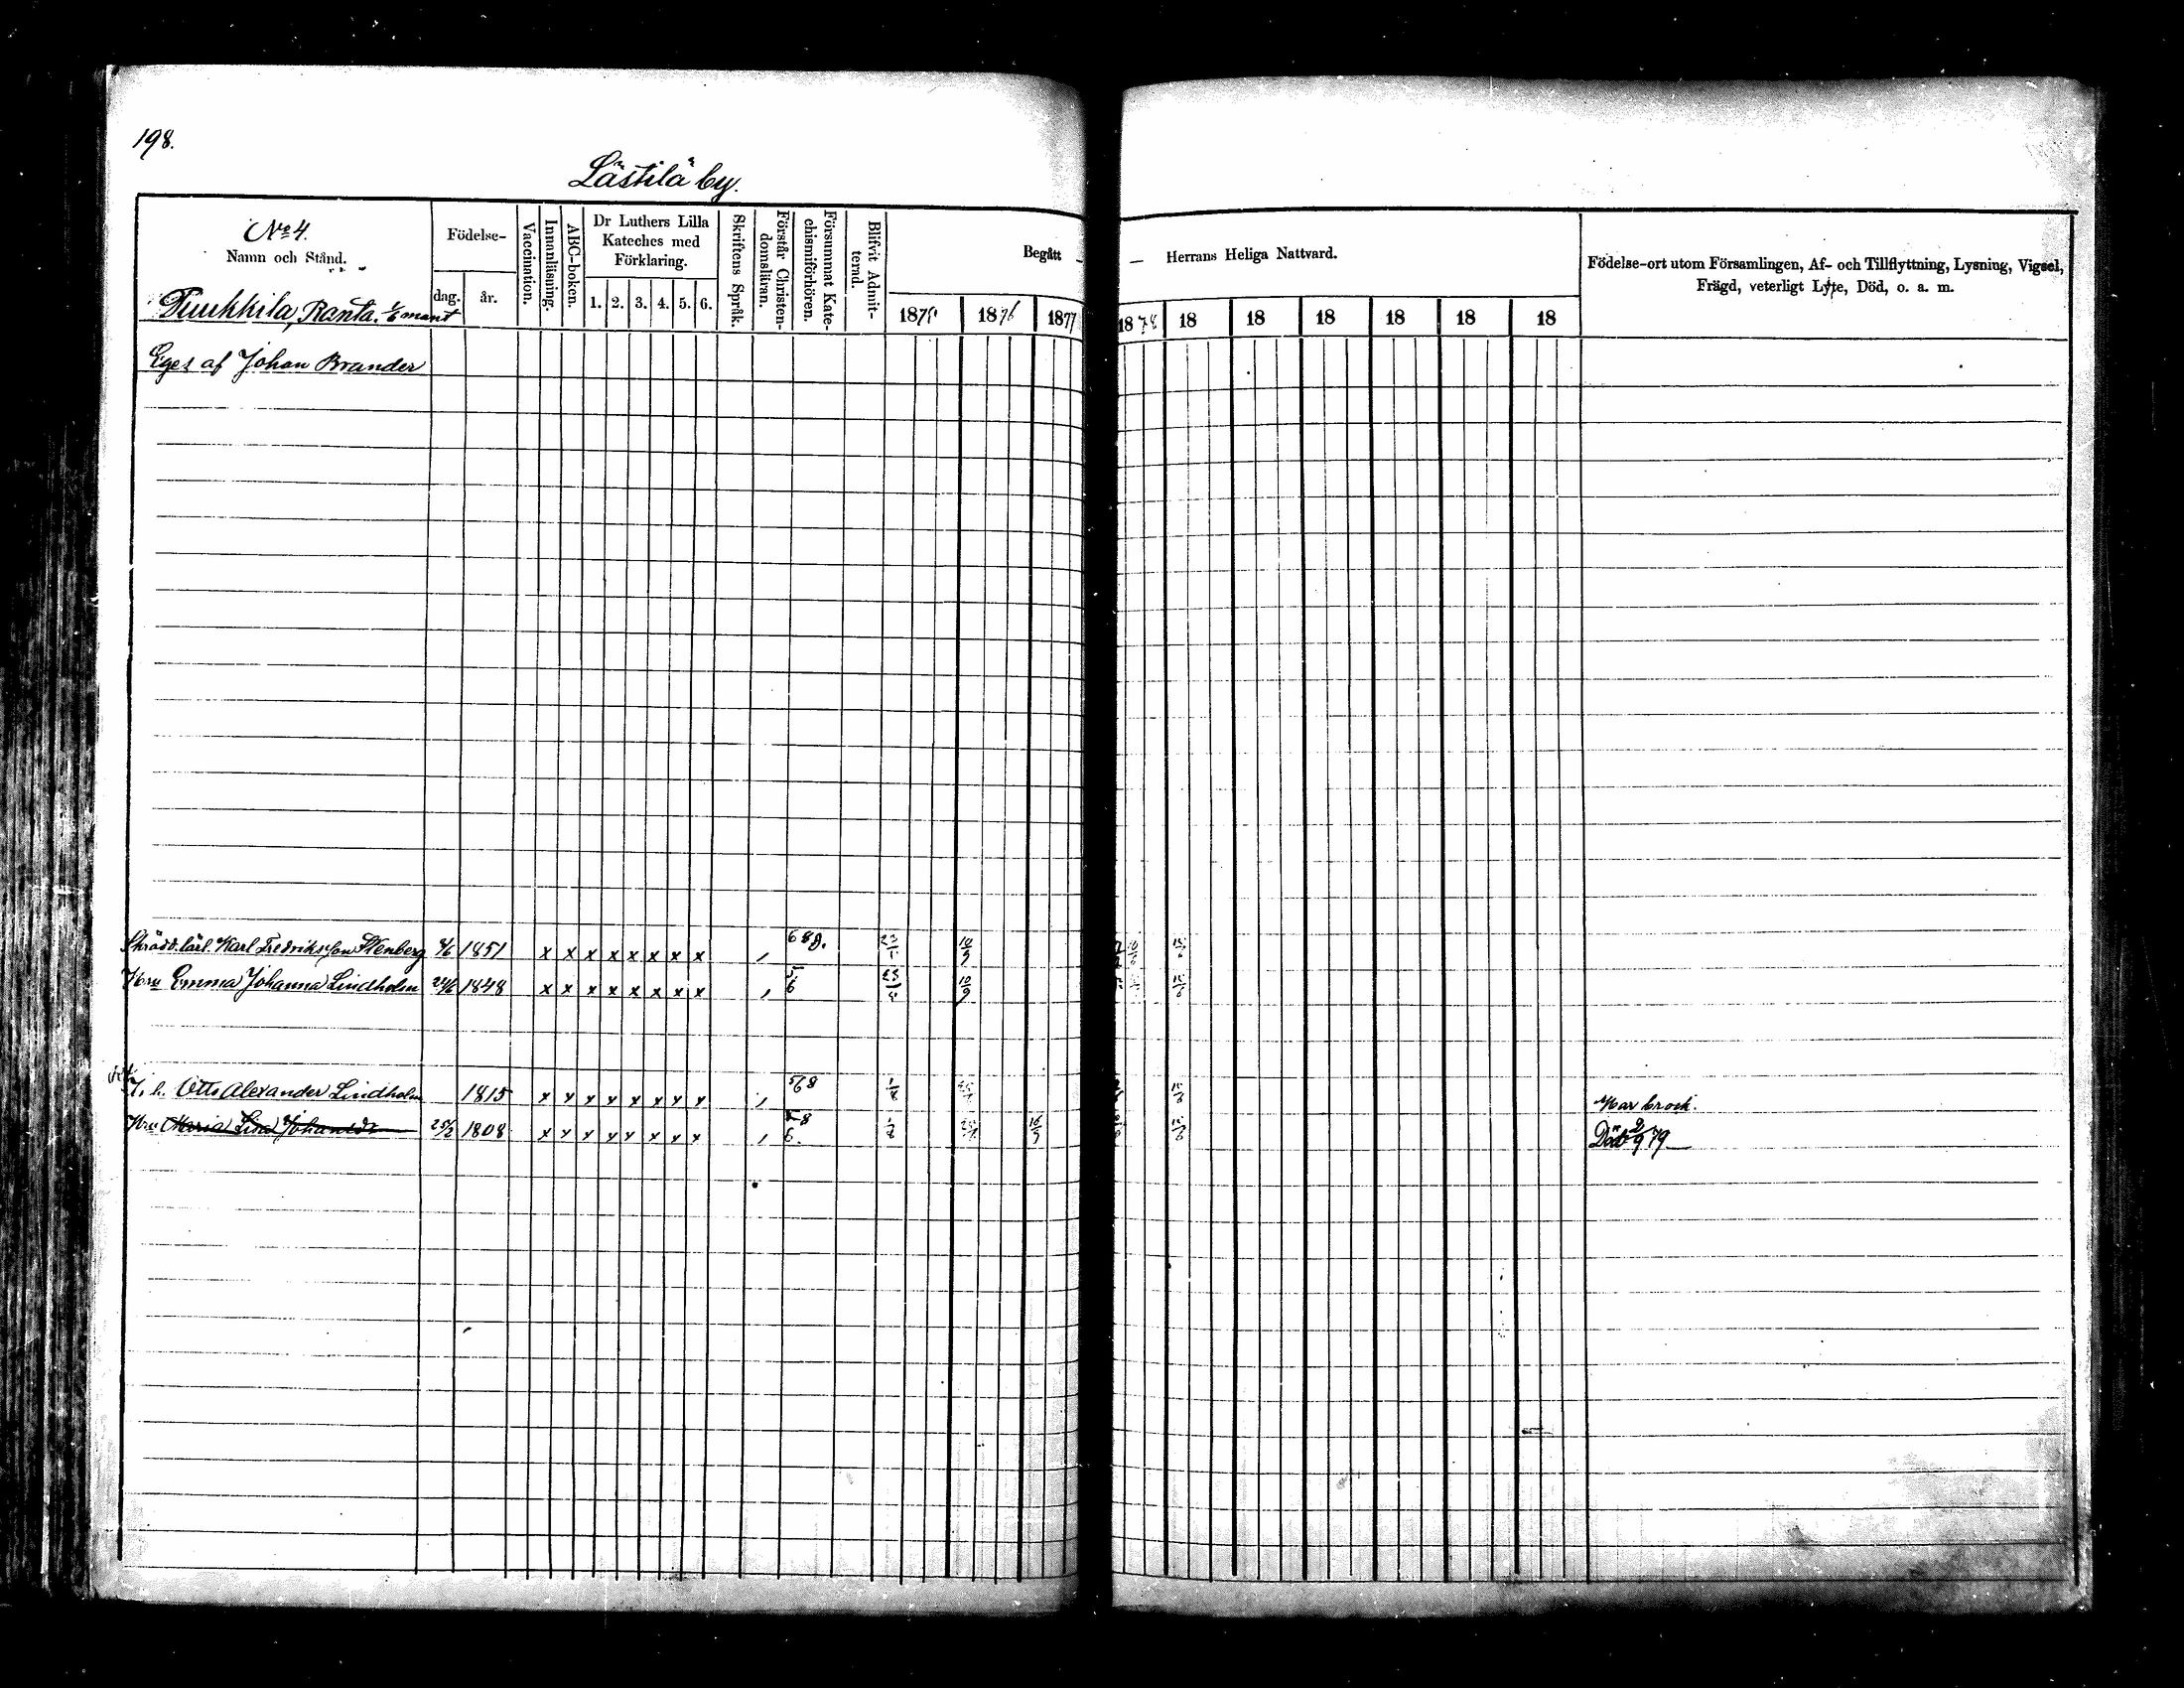 198.
Lästilä by.
No 4.
Namn och Stånd.
Tuukkila, Ranta. 1/6 mant
Födelse-
dag. år.
Vaccination.
Innanläsning.
ABC-boken.
Dr Luthers Lilla
Kateches med
Förklaring.
1. 2. 3. 4. 5. 6.
Skriftens Språk.
Förstår Christen-
domsläran.
Försummat Kate-
chismiförhören.
Blifvit Admit-
terad.
Begått — — Herrans Heliga Nattvard.
1875 1876 1877 1878 18 18 18 18 18 18
Födelse-ort utom Församlingen, Af- och Tillflyttning, Lysning, Vigsel,
Frägd, veterligt Lyte, Död, o. a. m.
Eges af Johan Brander
Skrädd. lärl. Karl Fredriksson Stenberg 1851 x x x x x x x x 10/9
Hru Emma Johanna Lindholm 24/6 1848 x x x x x x x x 5/6 10/9
I. h. Otto Alexander Lindholm 1815 x x x x x x x x 568 1/8 Har brock.
Hru Maria Lisa Johansdr 25/2 1808 x x x x x x x x 1/8 Död 2/9 79